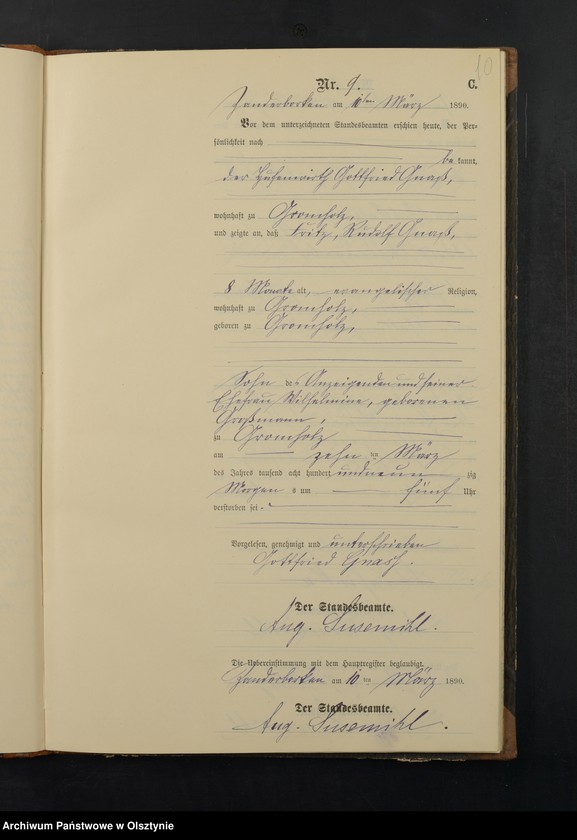 10
Nr. 9. C.
Zanderborken am 10ten März 1890.
Vor dem unterzeichneten Standesbeamten erschien heute, der Per-
sönlichkeit nach
be kannt,
der Hufenwirth Gottfried Gnaß,
wohnhaft zu Gromholz,
und zeigte an, daß Fritz, Rudolf Gnaß,
8 Monate alt, evangelischer Religion,
wohnhaft zu Gromholz,
geboren zu Gromholz,
Sohn des Anzeigenden und seiner
Ehefrau Wilhelmine, geborenen
Großmann,
zu Gromholz
am zehn ten März
des Jahres tausend acht hundert und neun zig
Morgen s um fünf Uhr
verstorben sei.
Vorgelesen, genehmigt und unterschrieben
Gottfried Gnass.
Der Standesbeamte.
Aug. Susemihl.
Die Uebereinstimmung mit dem Hauptregister beglaubigt.
Zanderborken am 10 ten März 1890.
Der Standesbeamte.
Aug. Susemihl.
Archiwum Państwowe w Olsztynie